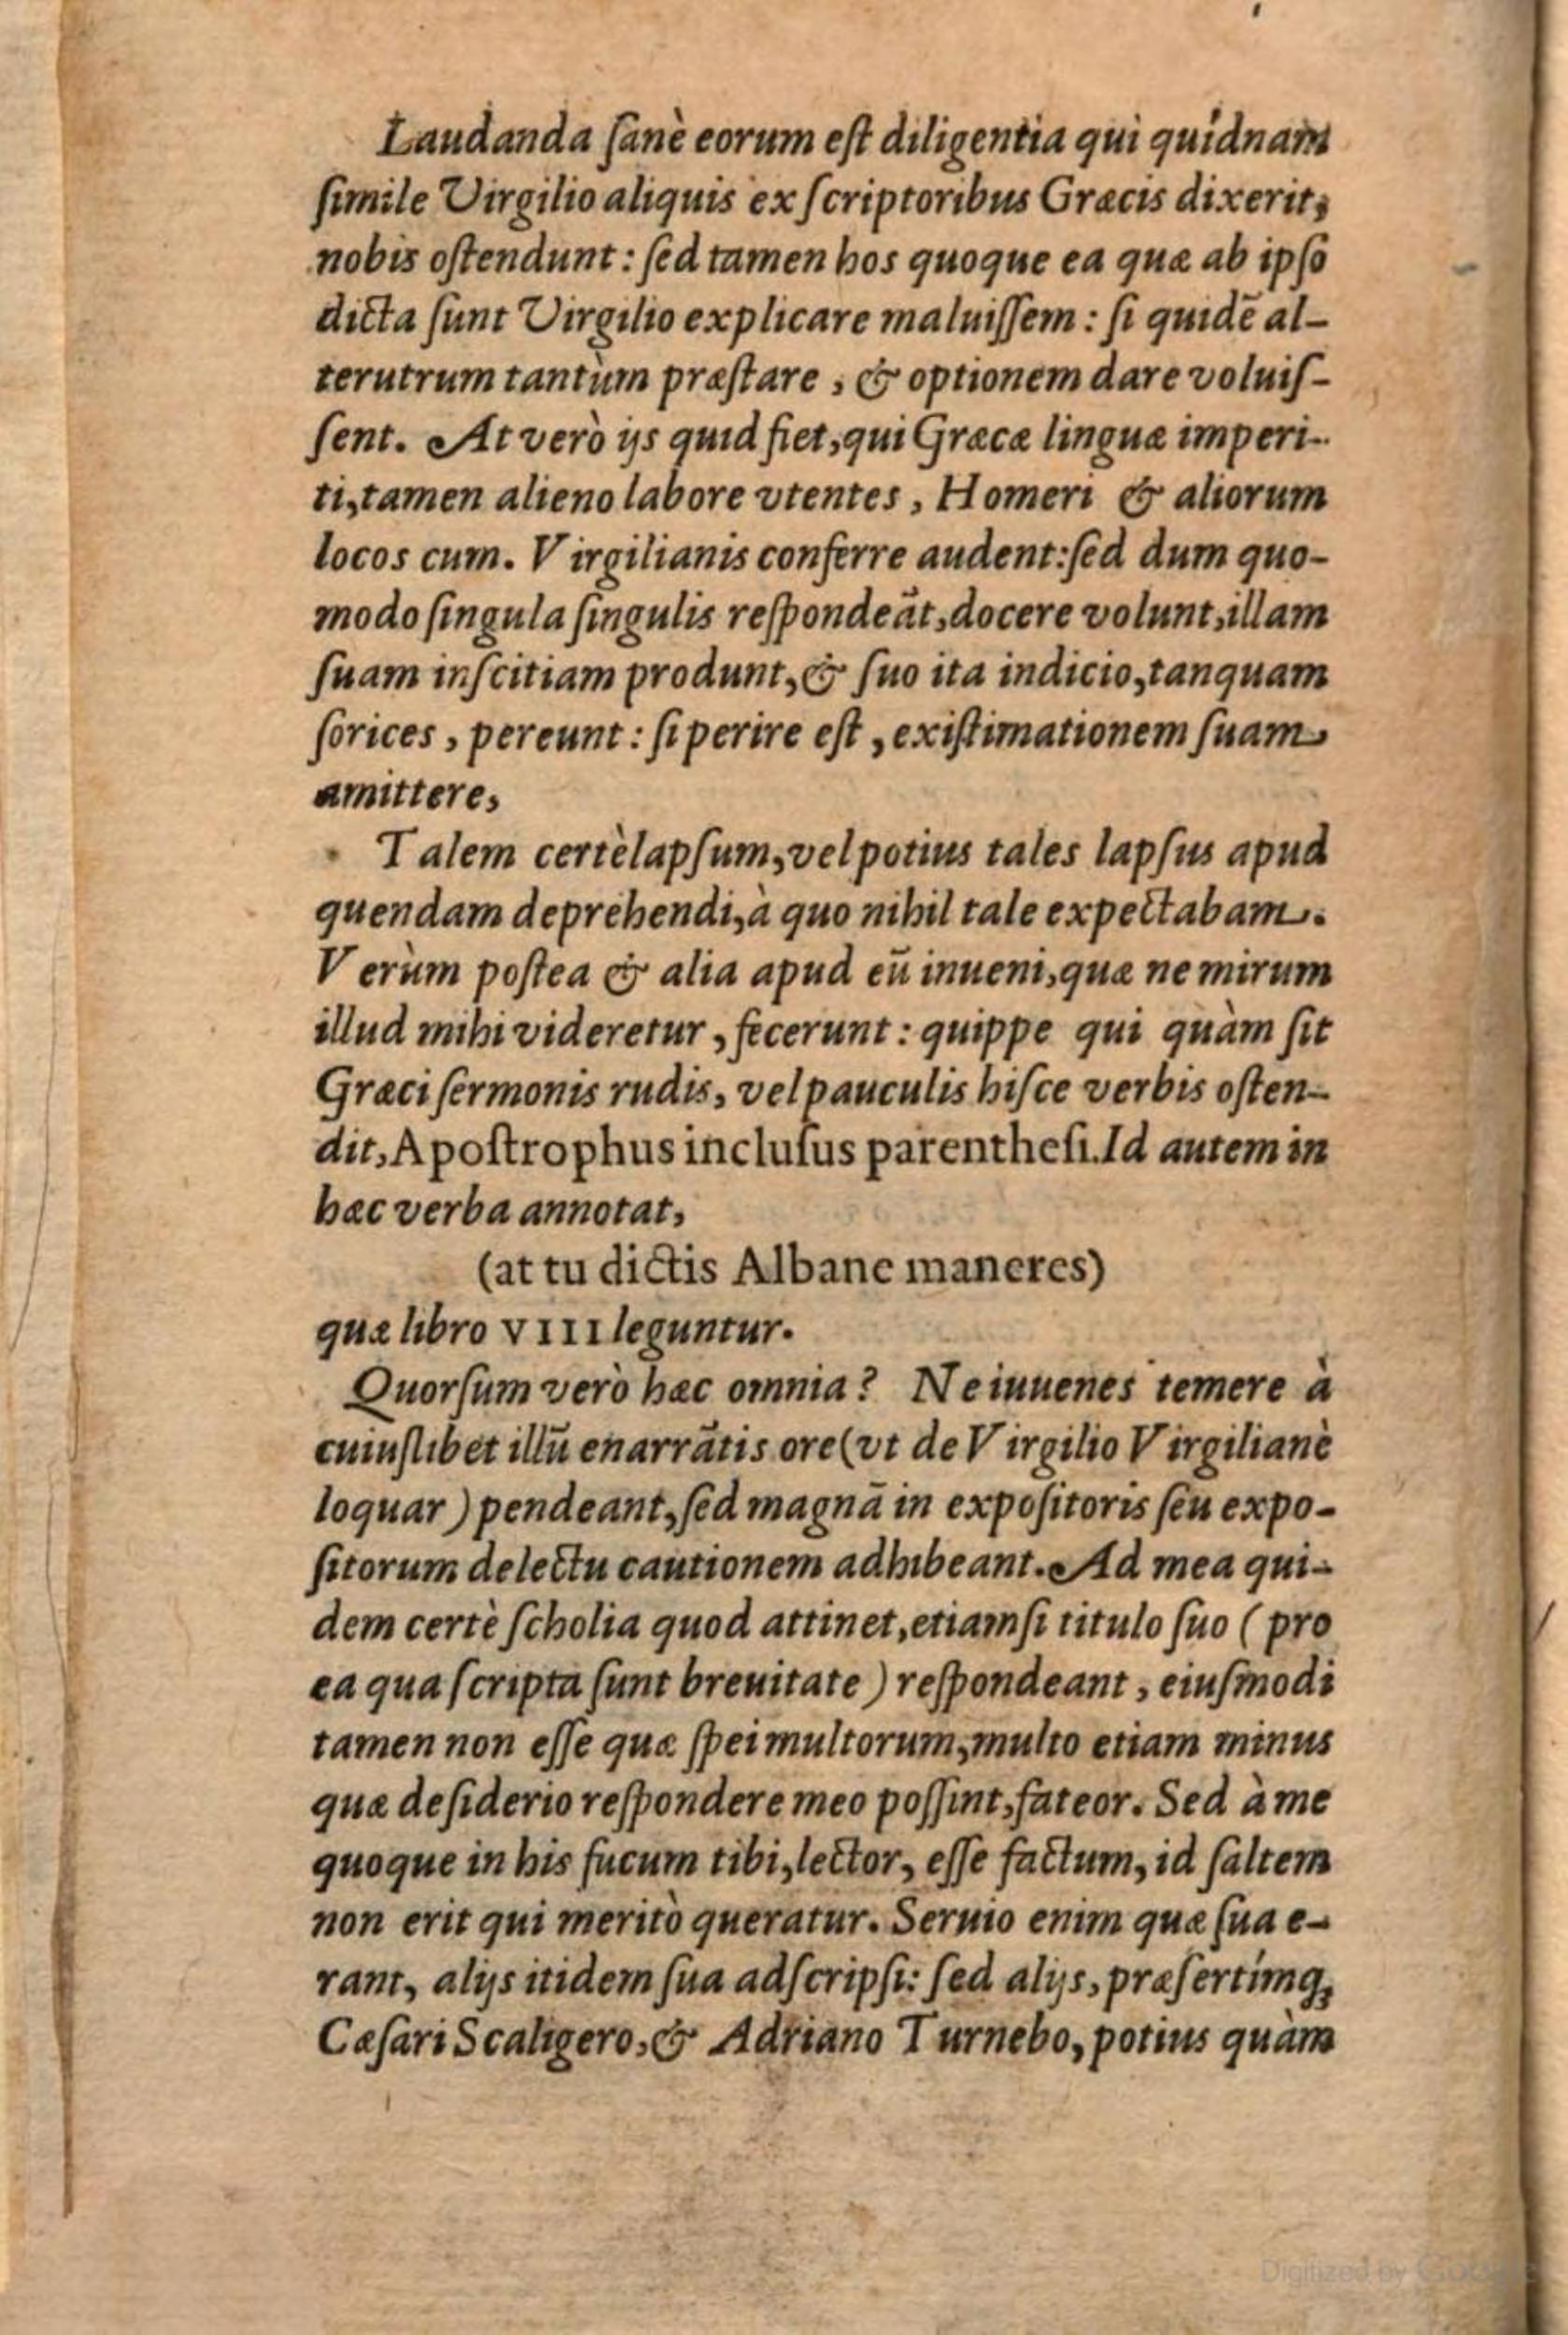 Laudanda ſanè eorum eſt diligentia qui quídnam
ſimile Virgilio aliquis ex ſcriptoribus Græcis dixerit,
nobis oſtendunt: ſed tamen hos quoque ea quæ ab ipſo
dicta ſunt Virgilio explicare maluiſſem: ſi quidē al-
terutrum tantùm præſtare, & optionem dare voluiſ-
ſent. At verò ijs quid fiet, qui Græcæ linguæ imperi-
ti, tamen alieno labore vtentes, Homeri & aliorum
locos cum. Virgilianis conferre audent: ſed dum quo-
modo ſingula ſingulis reſpondeāt, docere volunt, illam
ſuam inſcitiam produnt, & ſuo ita indicio, tanquam
ſorices, pereunt: ſi perire eſt, exiſtimationem ſuam
amittere,
Talem certè lapſum, vel potius tales lapſus apud
quendam deprehendi, à quo nihil tale expectabam.
Verùm poſtea & alia apud eū inueni, quæ ne mirum
illud mihi videretur, fecerunt: quippe qui quàm ſit
Græci ſermonis rudis, vel pauculis hiſce verbis oſten-
dit, Apoſtrophus incluſus parentheſi. Id autem in
hæc verba annotat,
(at tu dictis Albane maneres)
quæ libro VIII leguntur.
Quorſum verò hæc omnia? Ne iuuenes temere à
cuiuſlibet illū enarrātis ore (vt de Virgilio Virgilianè
loquar) pendeant, ſed magnā in expoſitoris ſeu expo-
ſitorum delectu cautionem adhibeant. Ad mea qui-
dem certè ſcholia quod attinet, etiamſi titulo ſuo (pro
ea qua ſcripta ſunt breuitate) reſpondeant, eiuſmodi
tamen non eſſe quæ ſpei multorum, multo etiam minus
quæ deſiderio reſpondere meo poſſint, fateor. Sed à me
quoque in his fucum tibi, lector, eſſe factum, id ſaltem
non erit qui meritò queratur. Seruio enim quæ ſua e-
rant, alijs itidem ſua adſcripſi: ſed alijs, præſertímq;
Cæſari Scaligero, & Adriano Turnebo, potius quàm
Digitized by Google